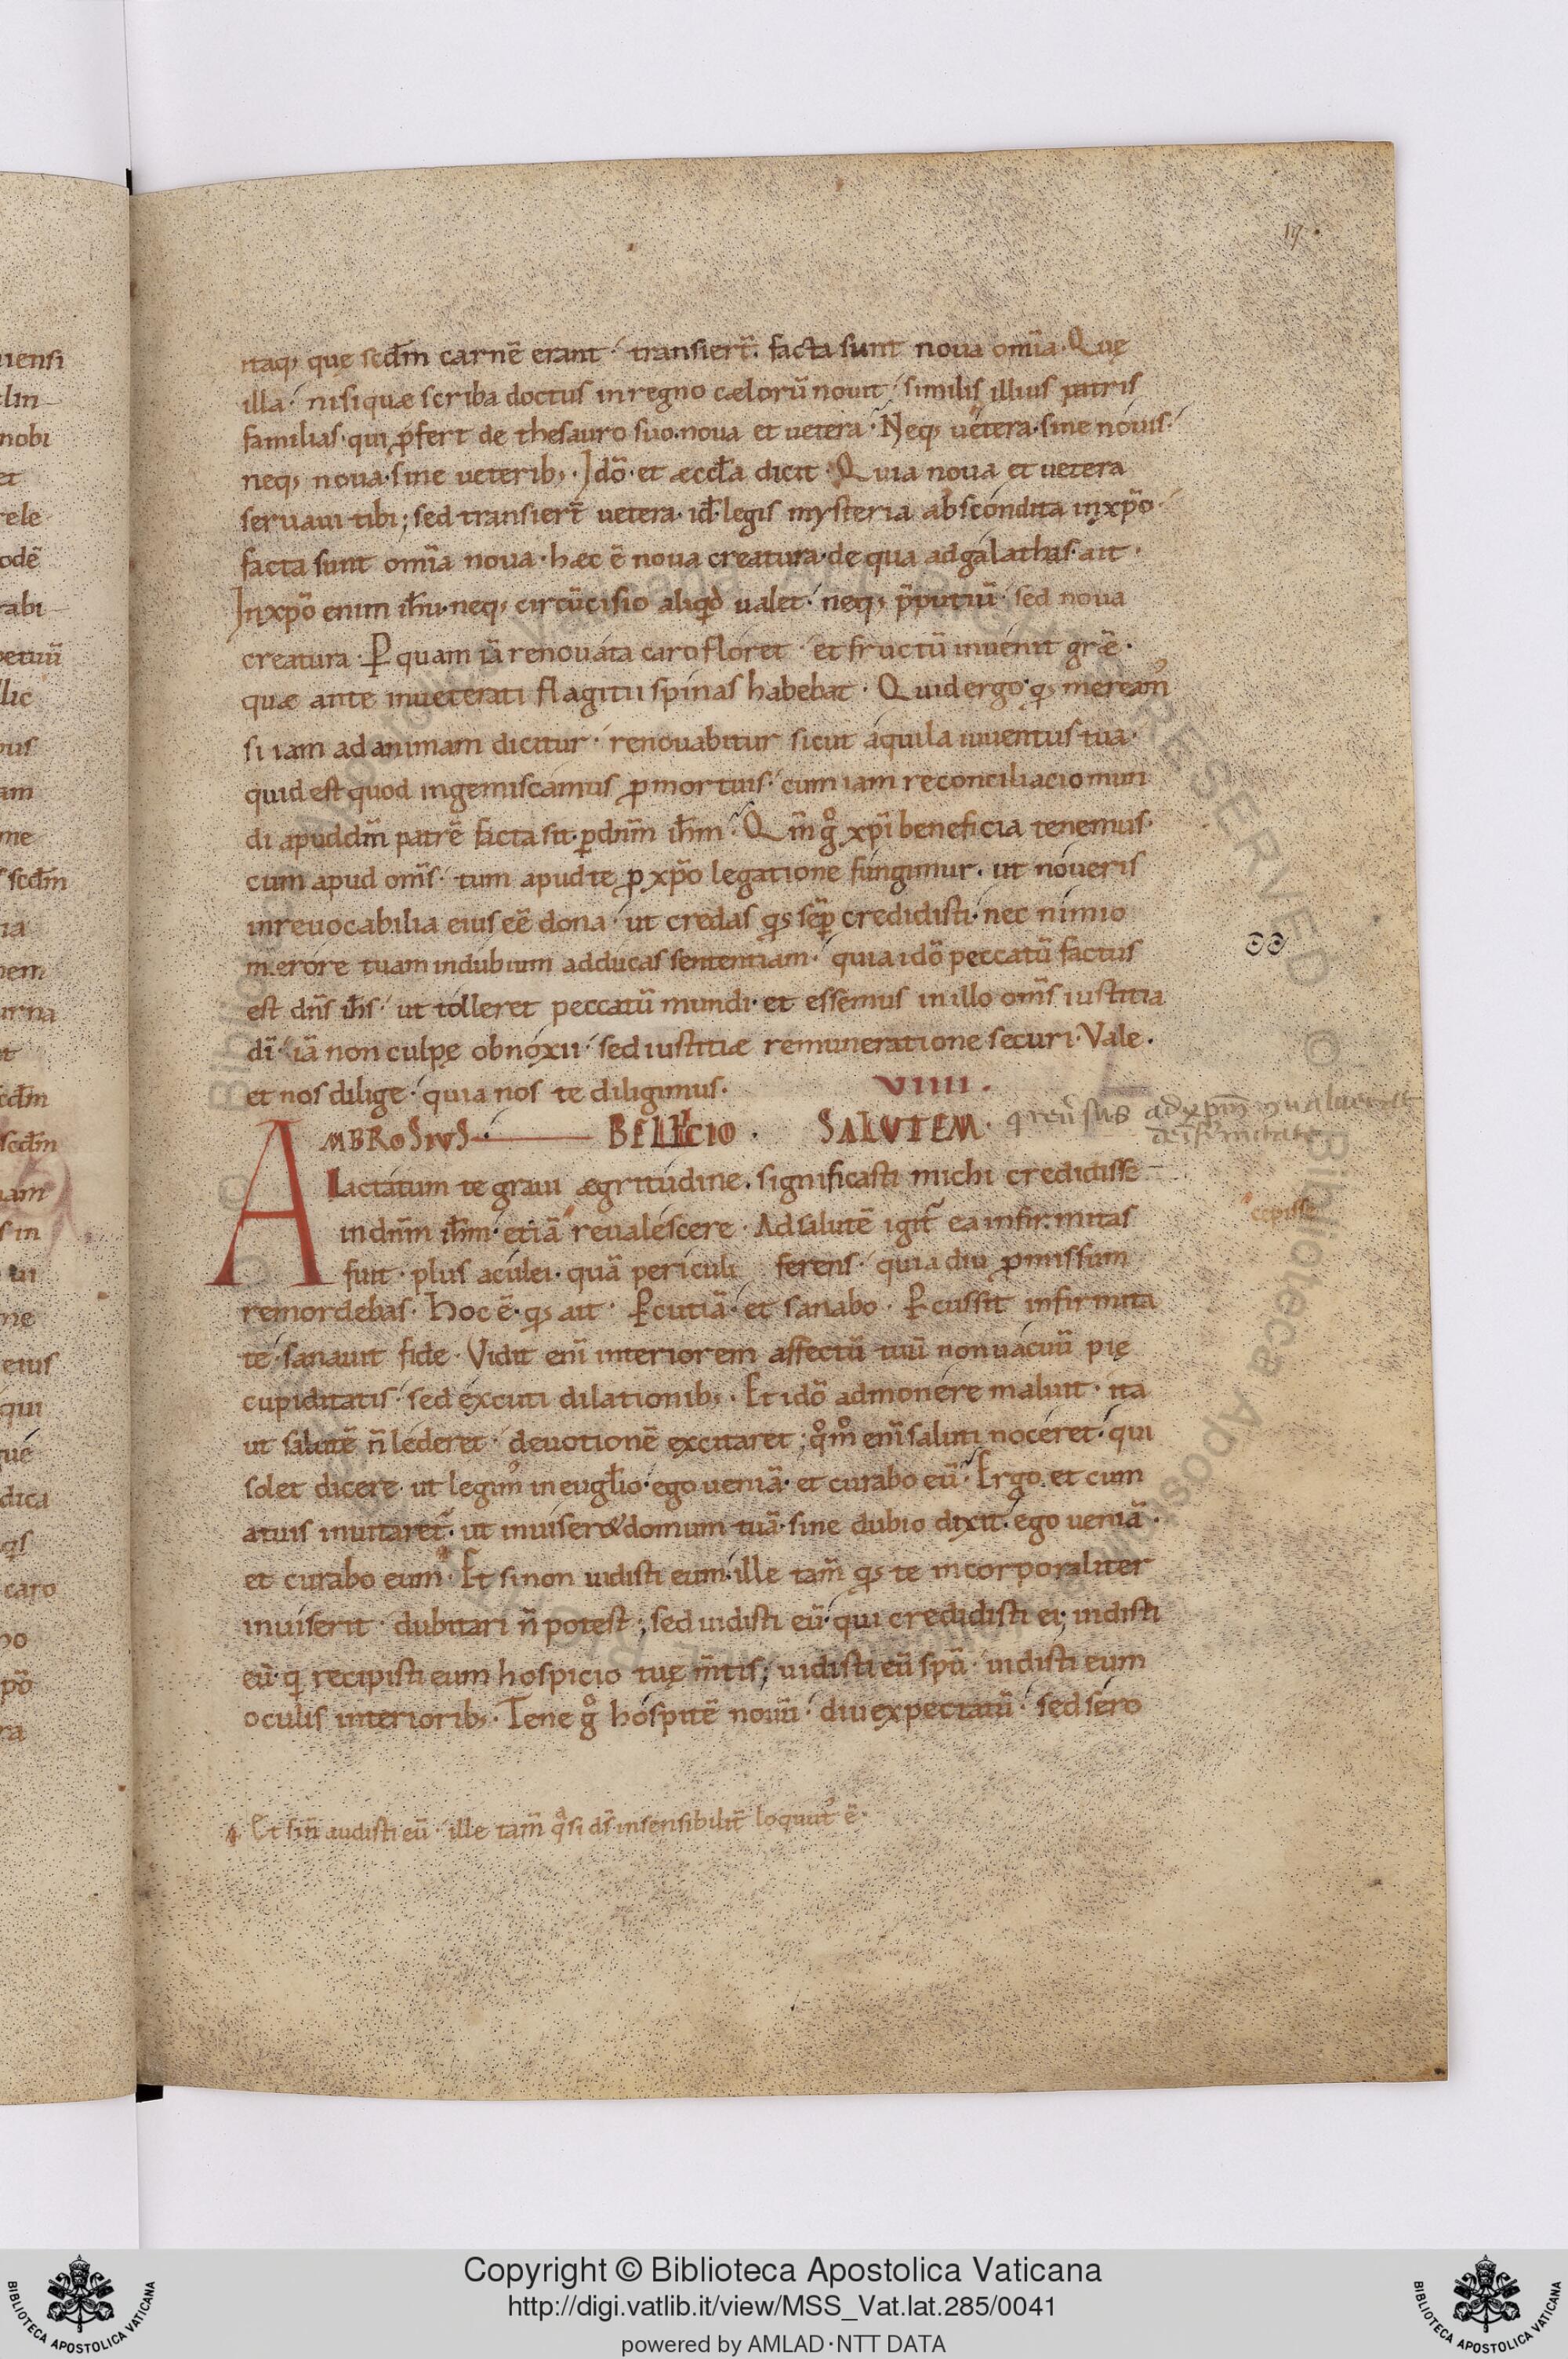 17
itaq; quę scdm̄ carnē erant · transiert̄ · facta sunt noua om̄ia · Quę
illa · nisi quæ scriba doctus in regno cælorū nouit · similis illius patris
familias · qui p̄fert de thesauro suo · noua et uetera · Neq; uetera · sine nouis ·
neq; noua · sine ueterib; · Idō · et æccła dicit · Quia noua et uetera
seruaui tibi ; sed transiert̄ uetera · id · legis mysteria abscondita in xp̄o ·
facta sunt om̄ia noua · hæc ē noua creatura · de qua ad galathas · ait ·
In xp̄o enim ih̄u · neq; circūcisio aliqd ualet · neq; p̄putiū · sed noua
creatura · P quam iā renouata caro floret · et fructū inuenit gr̄e ·
quæ ante inueterati flagitii spinas habebat · Quid ergo · q; meream᷒
si iam ad animam dicitur · renouabitur sicut aquila iuuentus tua ·
quid est quod ingemiscamus p mortuis · cum iam reconciliacio mun
di apud dm̄ patrē facta sit · p dnm̄ ih̄m · Qm̄ gͦ xp̄i beneficia tenemus ·
cum apud om̄s · tum apud te p xp̄o legatione fungimur · ut noueris
inreuocabilia eius eē dona · ut credas q; sēp credidisti · nec nimio
merore tuam in dubium adducas sententiam · quia idō peccatū factus
est dn̄s ih̄s · ut tolleret peccatū mundi · et essemus in illo om̄s iustitia
dī · iā non culpę obnoxii · sed iustitiæ remuneratione securi · Vale ·
et nos dilige · quia nos te diligimus ·
VIIII ·
AMBROSIVS · BELLICIO · SALVTEM ·
lactatum te graui ægritudine · significasti michi credidisse
in dnm̄ ih̄m · etiā reualescere · Ad salutē igit̄ ea infirmitas
cepisse
fuit · plus aculei · quā periculi ferens · quia diu pmissum
remordebas · Hoc ē · q; ait · Pcutiā · et sanabo · Pcussit infirmita
te · sanauit fide · Vidit enī interiorem affectū tuū non uacuū pię
cupiditatis · sed excuti dilationib; · Et idō admonere maluit · ita
ut salutē n̄ lederet · deuotionē excitaret ; qͦmͦ enī saluti noceret · qui
solet dicere · ut legim᷒ in euglio · ego ueniā · et curabo eū · Ergo et cum
a tuis inuitaret̄ · ut inuiser& domum tuā · sine dubio dixit · ego ueniā ·
et curabo eum · Et si non uidisti eum · ille tam̄ q; te incorporaliter
inuiserit · dubitari n̄ potest ; sed uidisti eū · qui credidisti ei ; uidisti
eū · q recipisti eum hospicio tuę m̄tis ; uidisti eū spū · uidisti eum
oculis interiorib; · Tene gͦ hospitē nouū · diu expectatū · sed sero
Et si n̄ audisti eū · ille tam̄ qᵃsi ds̄ insensibilit̄ loquut᷒ ē ·
Copyright © Biblioteca Apostolica Vaticana
http://digi.vatlib.it/view/MSS_Vat.lat.285/0041
powered by AMLAD·NTT DATA
BIBLIOTECA APOSTOLICA VATICANA
BIBLIOTECA APOSTOLICA VATICANA